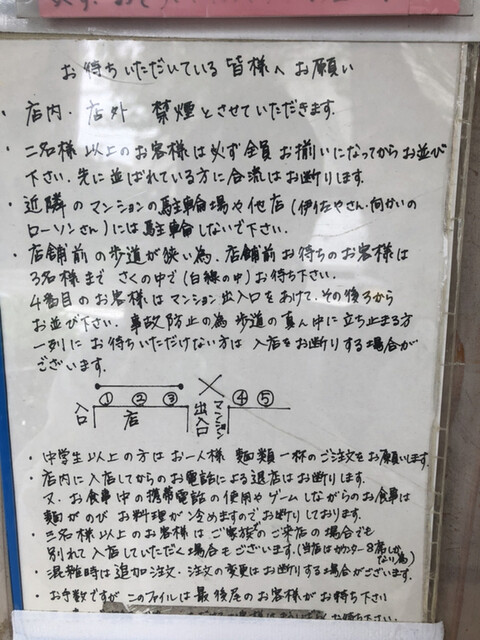 お待ちいただいている皆様へお願い
・店内・店外 禁煙とさせていただきます.
・二名様以上のお客様は必ず全員お揃いになってからお並び
下さい.先に並ばれている方に合流はお断りします.
・近隣のマンションの駐輪場や他店(伊佐やさん・向かいの
ローソンさん)には駐輪しないで下さい.
・店舗前の歩道が狭い為.店舗前お待ちのお客様は
3名様まで さくの中で(白線の中)お待ち下さい.
4番目のお客様はマンション出入口をあけて.その後ろから
お並び下さい. 事故防止の為 歩道の真ん中に立ち止まる方
一列に お待ちいただけない方は 入店をお断りする場合が
ございます.
入口 ① ② ③ 店 出入口 マンション ④ ⑤
・中学生以上の方は お一人様 麺類一杯のご注文をお願いします.
・店内に入店してからのお電話による退店はお断りします.
又.お食事中の携帯電話の使用やゲームしながらのお食事は
麺がのび お料理が冷めますのでお断りしております.
・三名様以上のお客様は ご家族のご来店の場合でも
別れて入店していただく場合もございます.(当店はカウンター8席しかない為)
・混雑時は追加注文・注文の変更はお断りする場合がございます.
・お手数ですが このファイルは 最後尾のお客様がお持ち下さい